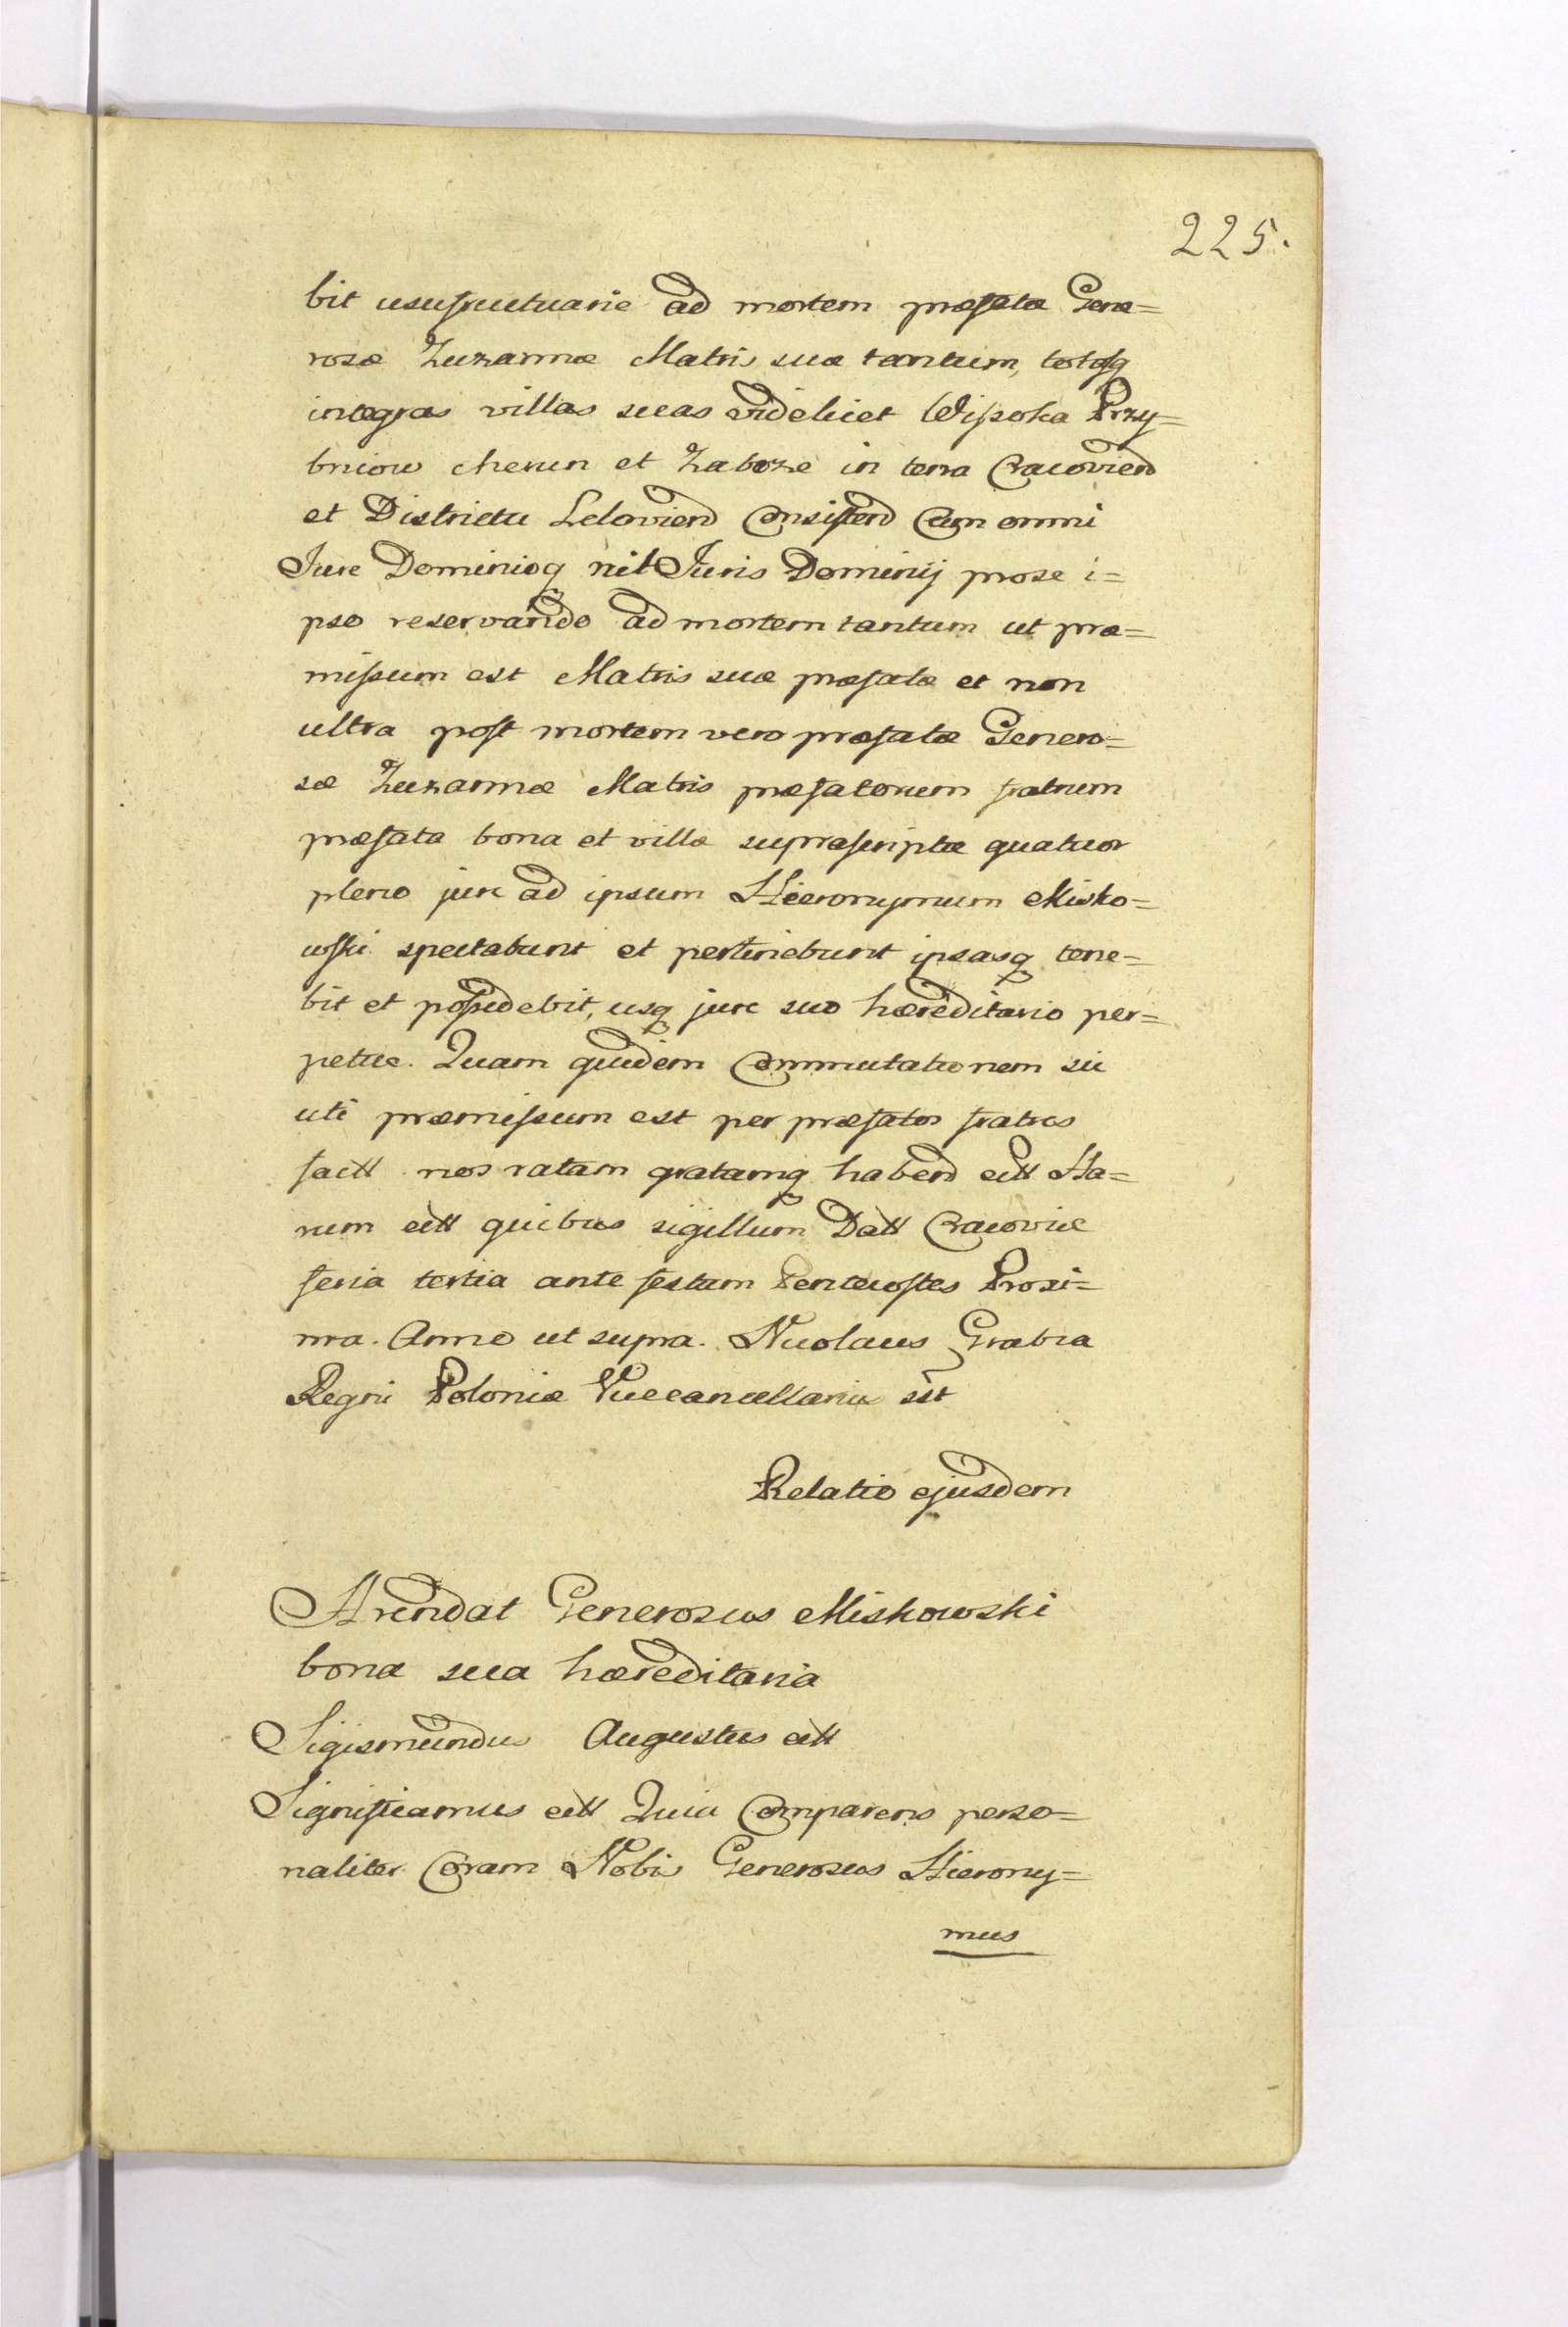 225.
bit usufructuarie ad mortem præfatæ Gene=
rosæ Zuzannæ Matris suæ tantum, totasq
integras villas suas videlicet Wissoka Przy=
bniow cherun et Zaborze in terra Cracoviend
et Districtu Leloviend Consistend Cum omni
Jure Dominioq nil Juris Dominij pro se i=
pso reservando ad mortem tantum ut præ=
missum est Matris suæ præfatæ et non
ultra post mortem vero præfatæ Genero=
sæ Zuzannæ Matris præfatorum fratrum
præfata bona et villæ suprascriptæ quatuor
pleno jure ad ipsum Hieronymum Misko=
wski spectabunt et pertinebunt ipsasq tene=
bit et possidebit, usq jure suo hæreditario per=
petue. Quam quidem Commutationem sic
uti præmissum est per præfatos fratres
factt nos ratam gratamq habend ectt Ha=
rum ectt quibus sigillum Datt Cracoviæ
feria tertia ante festum Pentecostes Proxi=
ma. Anno ut supra. Nicolaus Grabia
Regni Poloniæ Vicecancellarius sst
Relatio ejusdem
Arendat Generosus Miskowski
bona sua hæreditaria
Sigismundus Augustus ectt
Significamus ectt Quia Comparens perso=
naliter Coram Nobis Generosus Hierony=
mus